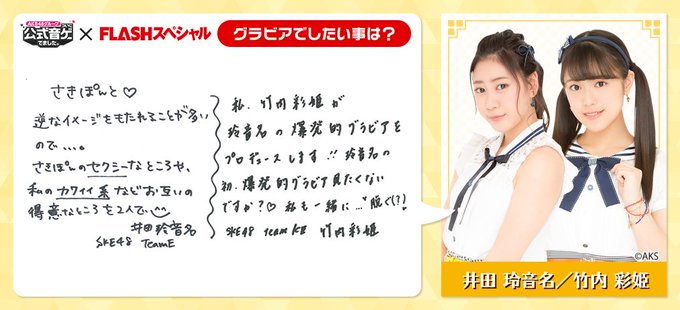 AKB48グループ
公式音ゲー
でました。
×
FLASHスペシャル
グラビアでしたい事は?
さきぽんと♡
逆なイメージをもたれることが多い
ので...。
さきぽんのセクシーなところや、
私のカワイイ系などお互いの
得意なところを2人で
井田玲音名
SKE48 TeamE
私、竹内彩姫が
玲音名の爆発的グラビアを
プロデュースします!! 玲音名の
初・爆発的グラビア見たくない
ですか?♡ 私も一緒に...脱ぐ(?!)
SKE48 Team KII 竹内彩姫
©AKS
井田 玲音名/竹内 彩姫